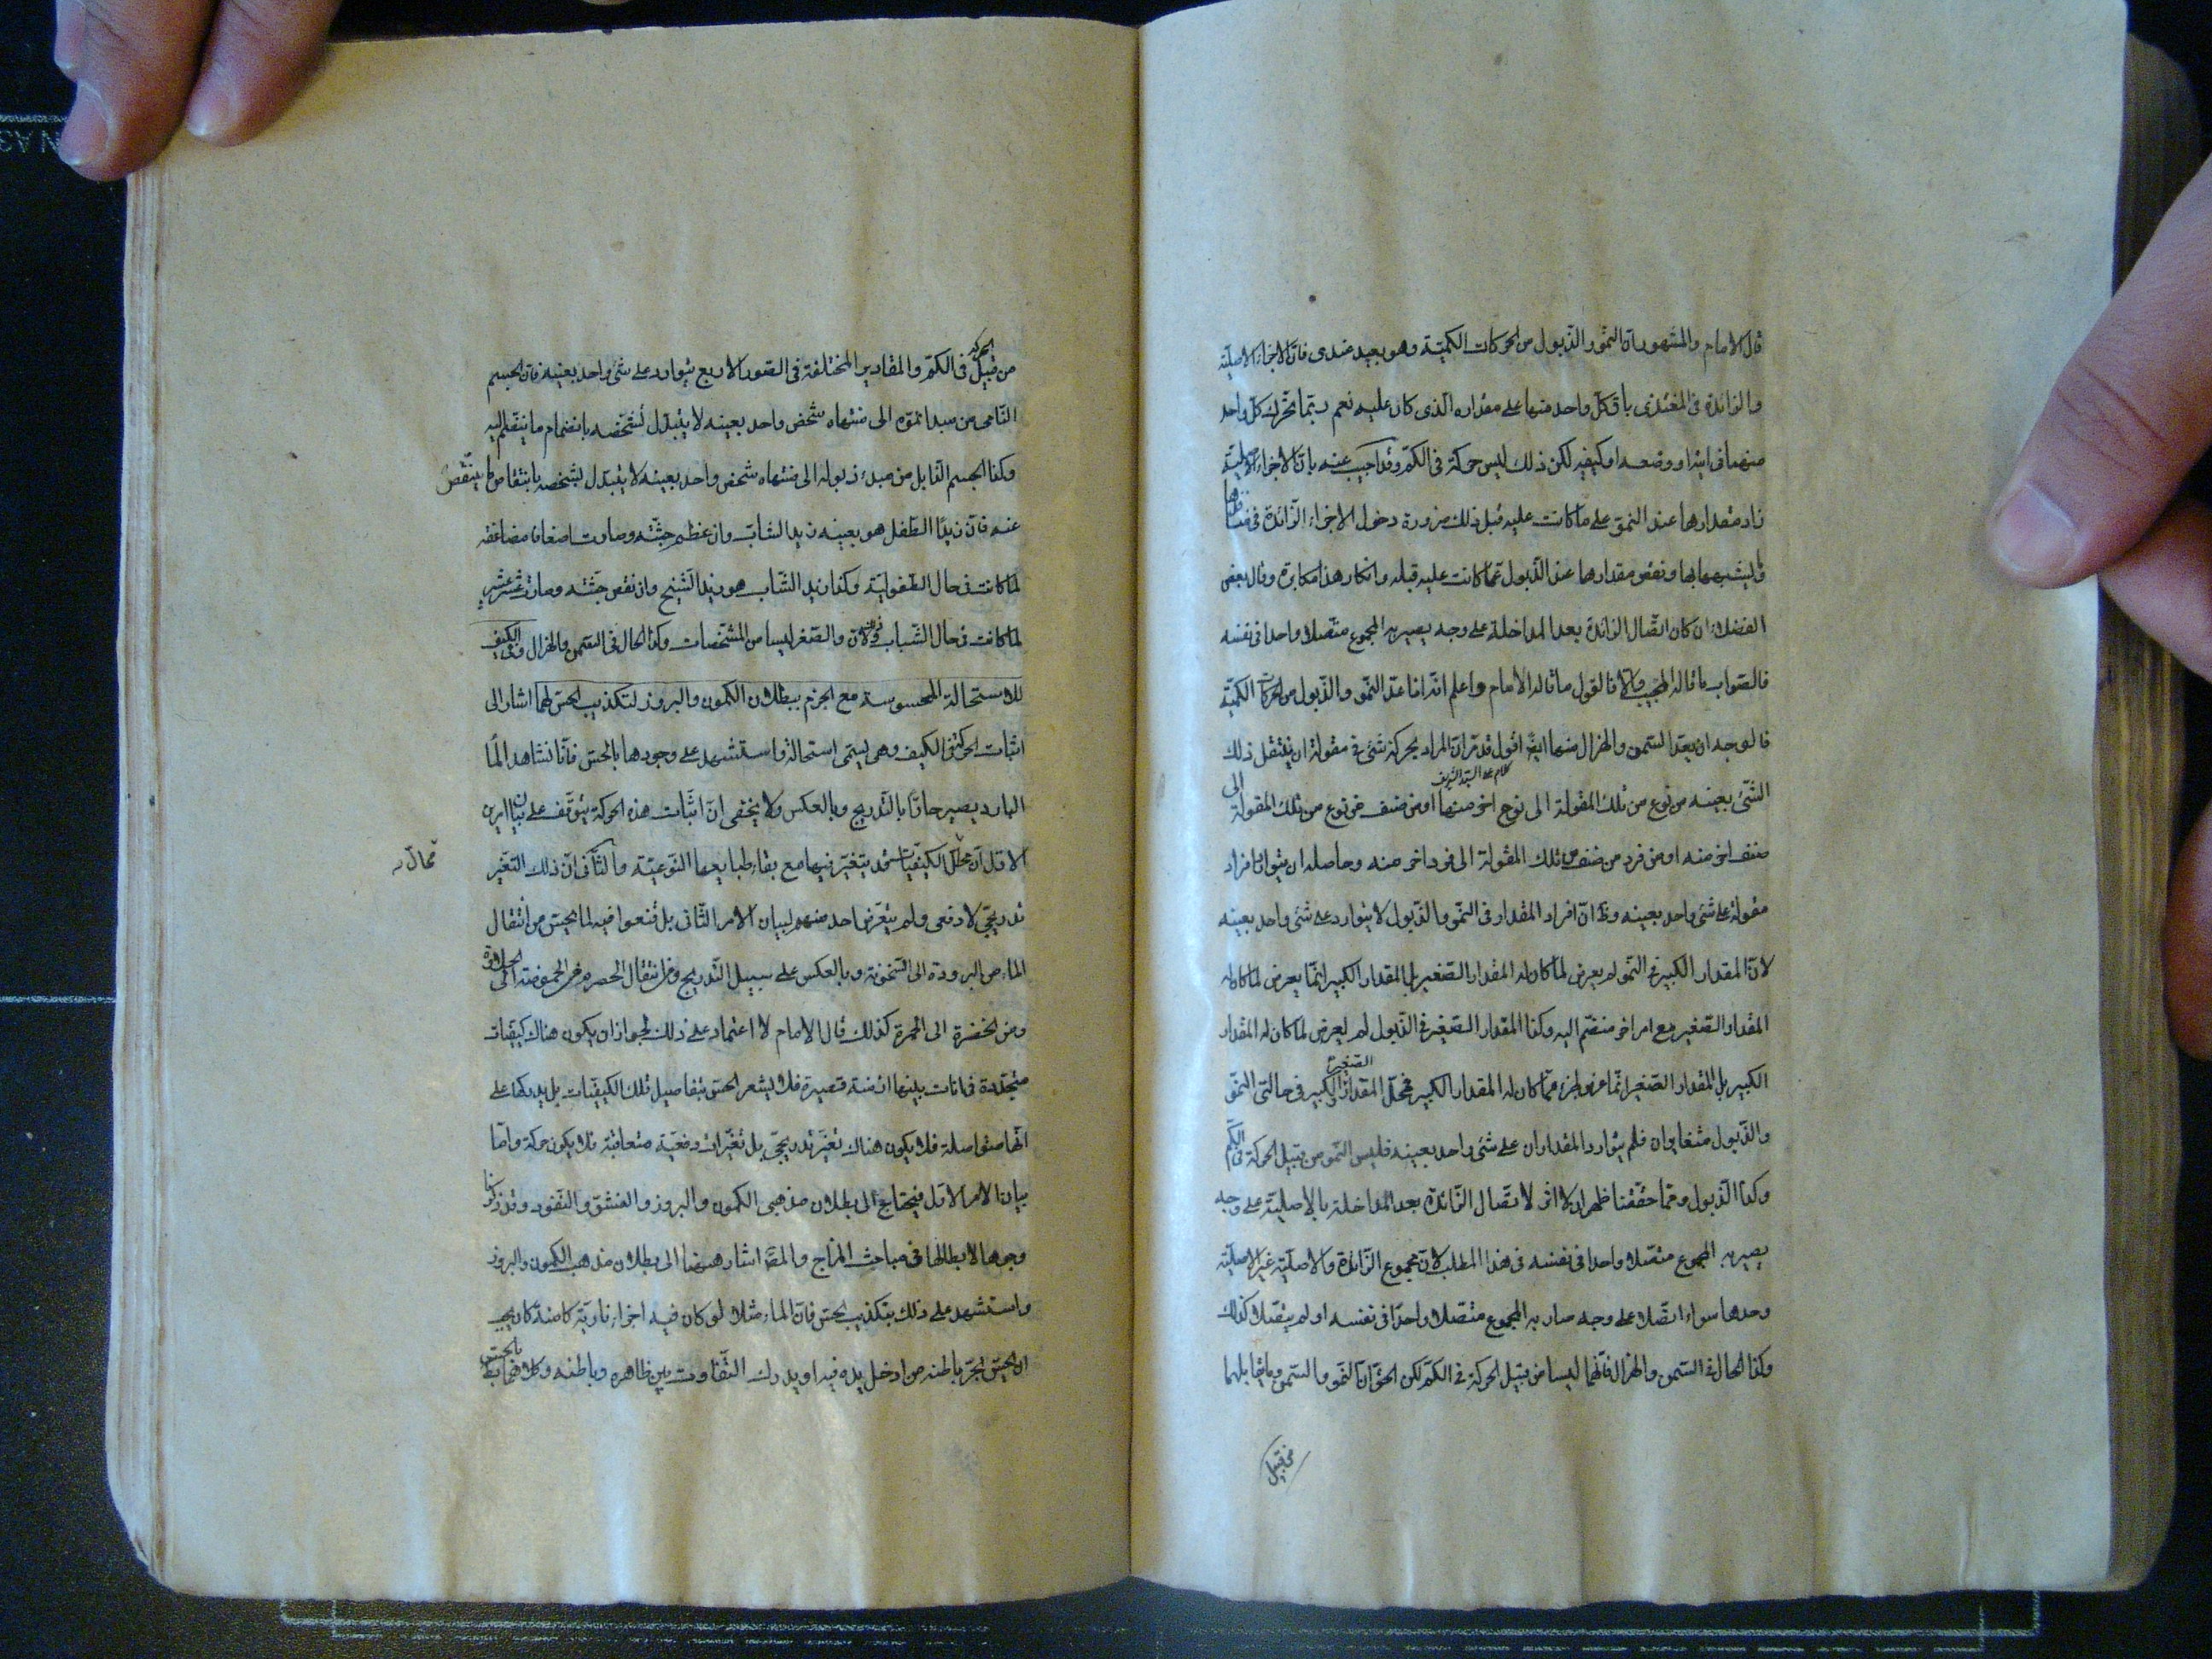 قال الامام والمشهور ان النمو والذبول من الحركات الكمية وهو بعيد عندى فان الاجزاء الاصلية
والزائدة فى المغتذى باق كل واحد منها على مقداره الذى كان عليه نعم ربما تحرك كل واحد
منهما فى اينه او وضعه او كيفه لكن ذلك ليس حركة فى الكم وقد اجيب عنه بان الاجزاء الاصلية
زاد مقدارها عند النمو على ما كانت عليه قبل ذلك ضرورة دخول الاجزاء الزائدة فى منافذها
وتشبهها بها ونقص مقدارها عند الذبول عما كانت عليه قبله وانكار هذا مكابرة وقال بعض
الفضلاء ان كان اتصال الزائدة بعد المداخلة على وجه يصير به المجموع متصلا واحدا فى نفسه
فالصواب ما قاله المجيب والا فالقول ما قاله الامام واعلم انه اذا عد النمو والذبول من الحركات الكمية
فالوجه ان يعد السمن والهزال منها ايضا اقول قد مر ان المراد بحركة شئ فى مقولة ان ينتقل ذلك
كلام على السيد الشريف
الشئ بعينه من نوع من تلك المقولة الى نوع اخر منها او من صنف من نوع من تلك المقولة الى
صنف اخر منه او من فرد من صنف من تلك المقولة الى فرد اخر منه وحاصله ان يتوارد افراد
مقولة على شئ واحد بعينه وظ ان افراد المقدار فى النمو والذبول لا يتوارد على شئ واحد بعينه
لان المقدار الكبير فى النمو لم يعرض لما كان له المقدار الصغير بل المقدار الكبير انما يعرض لما كان له
المقدار الصغير مع امر اخر منضم اليه وكذا المقدار الصغير فى الذبول لم يعرض لما كان له المقدار
الكبير بل المقدار الصغير انما عرض لجزء مما كان له المقدار الكبير فمحل المقدار الصغير والكبير فى حالتى النمو
والذبول متغايران فلم يتوارد المقداران على شئ واحد بعينه فليس النمو من قبيل الحركة فى الكم
وكذا الذبول ومما حققنا ظهر ان لا اثر لاتصال الزائدة بعد المداخلة بالاصلية على وجه
يصير به المجموع متصلا واحدا فى نفسه فى هذا المطلب لان مجموع الزائدة والاصلية غير الاصلية
وحدها سواء اتصلا على وجه صار به المجموع متصلا واحدا فى نفسه او لم يتصلا كذلك
وكذا الحال فى السمن والهزال فانهما ليسا من قبيل الحركة فى الكم لكن الحق ان النمو والسمن وما يقابلهما
من قبيل
من قبيل الحركة فى الكم والمقادير المختلفة فى الصور الاربع يتوارد على شئ واحد بعينه فان الجسم
النامى من مبدا نموه الى منتهاه شخص واحد بعينه لا يتبدل تشخصه بانضمام ما ينضم اليه
وكذا الجسم الذابل من مبدء ذبوله الى منتهاه شخص واحد بعينه لا يتبدل تشخصه بانتقاص ما ينتقص
عنه فان زيدا الطفل هو بعينه زيد الشاب وان عظم جثته وصارت اضعافا مضاعفة
لما كانت فى حال الطفولية وكذا زيد الشاب هو زيد الشيخ وان نقص جثته وصارت عشر عشير
لما كانت فى حال الشباب وذلك لان والصغر ليسا من المشخصات وكذا الحال فى السمن والهزال وفى الكيف
للاستحالة المحسوسة مع الجزم ببطلان الكمون والبروز لتكذيب الحس لهما اشار الى
اثبات الحركة فى الكيف وهى يسمى استحالة واستشهد على وجودها بالحس فانا نشاهد الماء
البارد يصير حارا بالتدريج وبالعكس ولا يخفى ان اثبات هذه الحركة يتوقف على بيان امرين
الاول ان محل الكيفيات قد يتغير فيها مع بقاء طبايعها النوعية والثانى ان ذلك التغير
محال
تدريجى لا دفعى ولم يتعرض احد منهم لبيان الامر الثانى بل قنعوا فيه لما يحس من انتقال
الماء من البرودة الى السخونة وبالعكس على سبيل التدريج ومن انتقال الحصرم من الحموضة الى الحلاوة
ومن الخضرة الى الحمرة كذلك قال الامام لا اعتماد على ذلك لجواز ان يكون هناك كيفيات
متجددة فى انات بينها ازمنة قصيرة فلا يشعر الحس بتفاصيل تلك الكيفيات بل يدركها على
انها متواصلة فلا يكون هناك تغير تدريجى بل تغيرات دفعية متعاقبة فلا يكون حركة واما
بيان الامر الاول فيحتاج الى بطلان مذهبى الكمون والبروز والفشو والنفوذ وقد ذكرنا
وجوها لابطالها فى مباحث المزاج والمص اشار ههنا الى بطلان مذهب الكمون والبروز
واستشهد على ذلك بتكذيب الحس فان الماء مثلا لو كان فيه اجزاء نارية كامنة كان يجب
ان يحس بحر باطنه من ادخل يده فيه او يدرك التفاوت بين ظاهره وباطنه بالحس